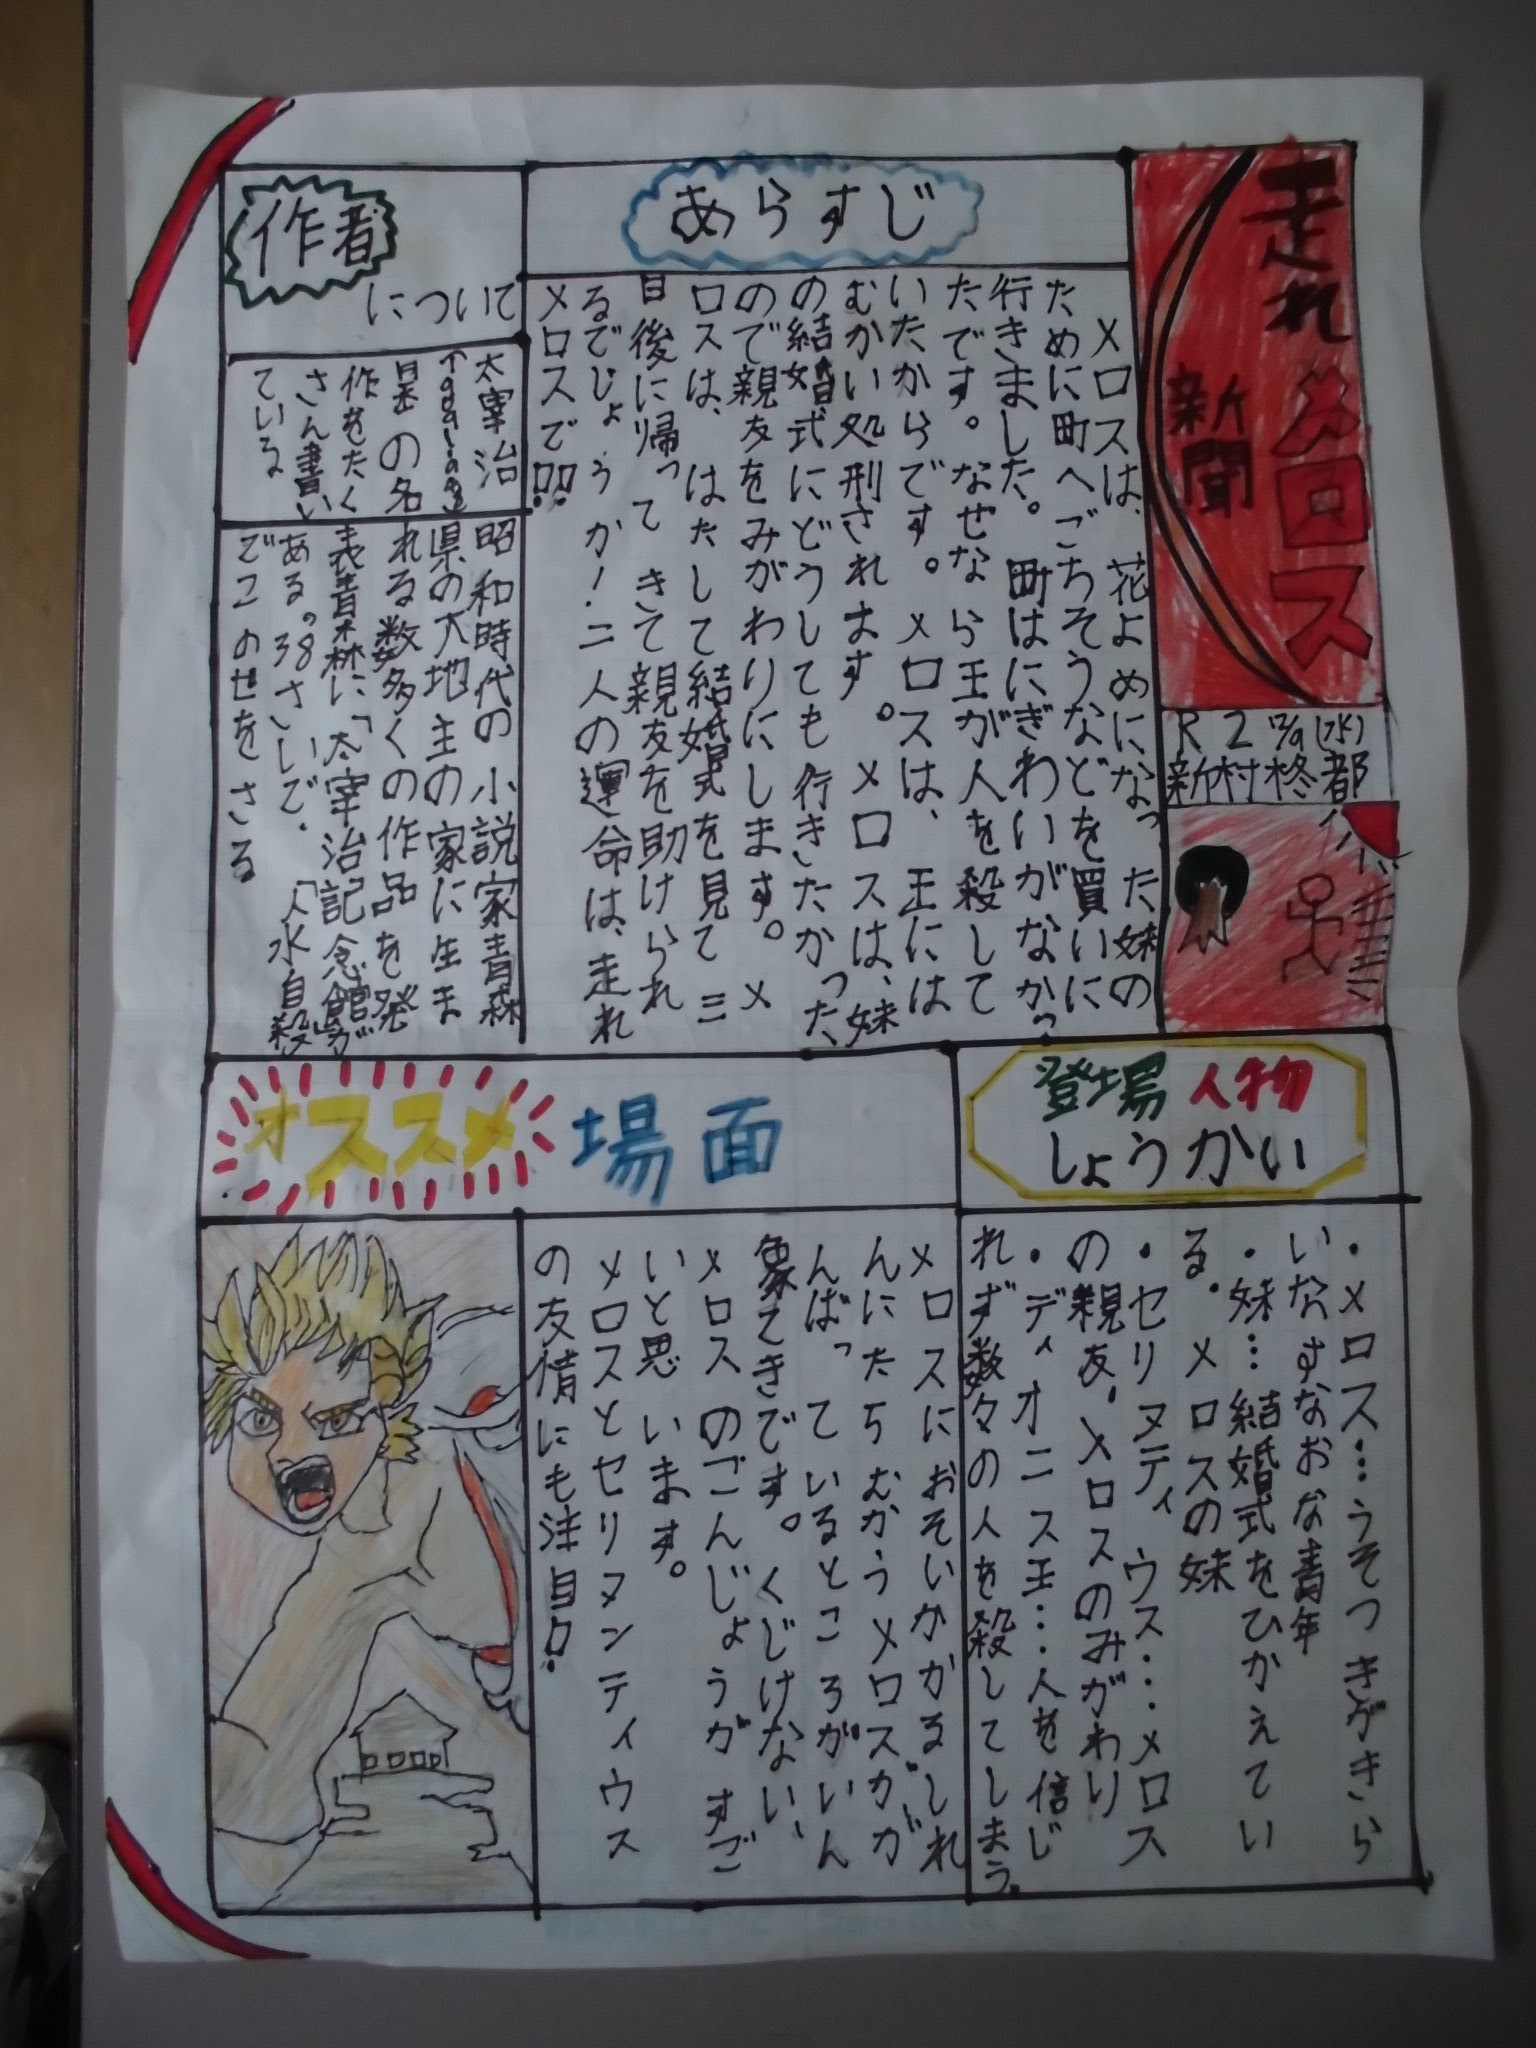 走れ
メロス
新聞
R2 12/9(水)
新村柊都
あらすじ
メロスは、花よめになった妹の
ために町へごちそうなどを買いに
行きました。町はにぎわいがなかっ
たです。なぜなら王が人を殺して
いたからです。メロスは、王には
むかい処刑されます。メロスは、妹
の結婚式にどうしても行きたかった
ので親友をみがわりにします。メ
ロスは、はたして結婚式を見て三
日後に帰ってきて親友を助けられ
るでしょうか!二人の運命は、走れ
メロスで!!
作者
について
太宰治
の名
作をたく
さん書い
ている
昭和時代の小説家青森
県の大地主の家に生ま
れる数多くの作品を発
表青森に「太宰治記念館」が
ある。38さいで、「入水自殺」
でこのせをさる
登場人物
しょうかい
・メロス…うそつきがきら
いなすなおな青年
・妹…結婚式をひかえてい
る。メロスの妹
・セリヌティウス…メロス
の親友。メロスのみがわり
・ディオニス王…人を信じ
れず数々の人を殺してしまう。
オススメ場面
メロスにおそいかかるしれ
んにたちむかうメロスがが
んばっているところがいん
象てきです。くじけない、
メロスのごんじょうがすご
いと思います。
メロスとセリヌンティウス
の友情にも注目!!